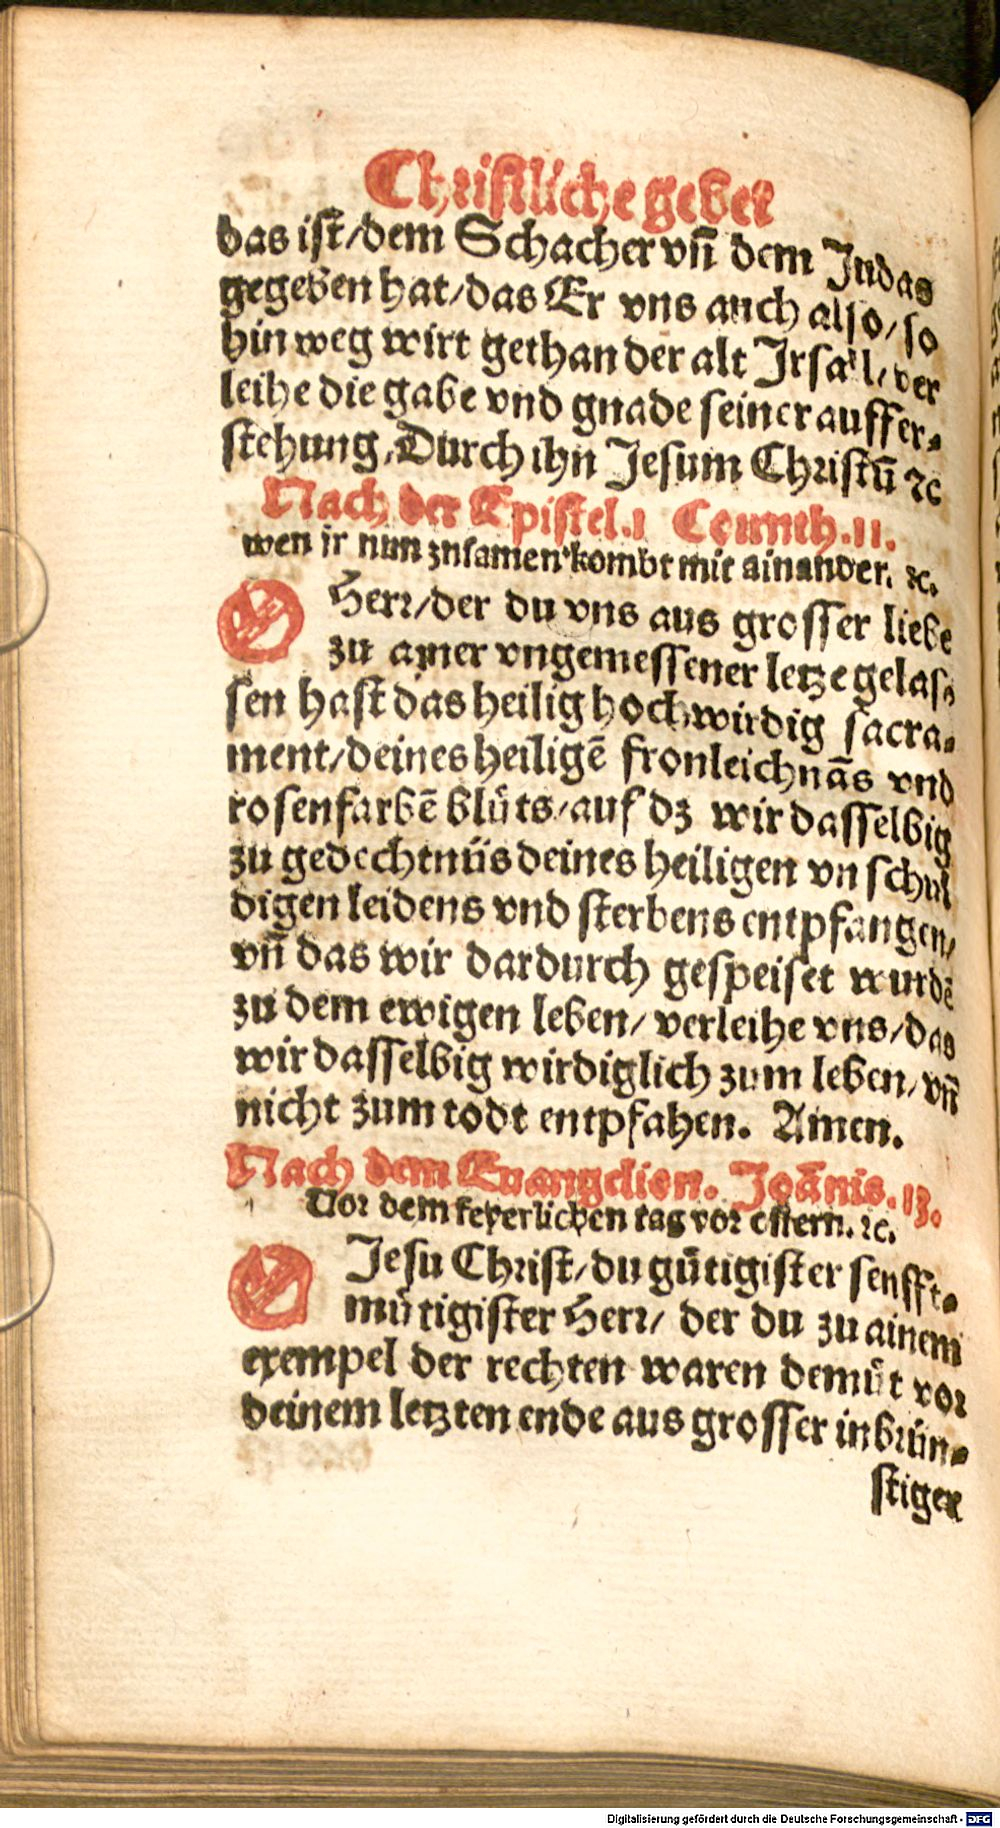 Christliche gebet
das ist/dem Schacher vn̄ dem Judas
gegeben hat/das Er vns auch also/so
hin weg wirt gethan der alt Irsall/ver
leihe die gabe vnd gnade seiner auffer⸗
stehung/Durch ihn Jesum Christū ꝛc
Nach der Epistel. 1 Corinth. 11.
wen ir nun zusamen kombt mit ainander. ꝛc.
O Herr/der du vns aus grosser liebe
zu ainer vngemessener letze gelas⸗
sen hast das heilig hochwirdig sacra⸗
ment/deines heiligē fronleichnā̄s vnd
rosenfarbē blůts/auf dz wir dasselbig
zu gedechtnüs deines heiligen vnschul
digen leidens vnd sterbens entpfangen/
vn̄ das wir dardurch gespeiset wurdē
zu dem ewigen leben/ verleihe vns/das
wir dasselbig wirdiglich zum leben/ vn̄
nicht zum todt entpfahen. Amen.
Nach dem Euangelien. Joānis. 13.
Vor dem feyerlichen tag vor ostern. ꝛc.
O Jesu Christ/du gůtigister senfft⸗
můtigister Herr/ der du zu ainem
exempel der rechten waren demůt vor
deinem letzten ende aus grosser inbrün⸗
stiger
Digitalisierung gefördert durch die Deutsche Forschungsgemeinschaft - DFG